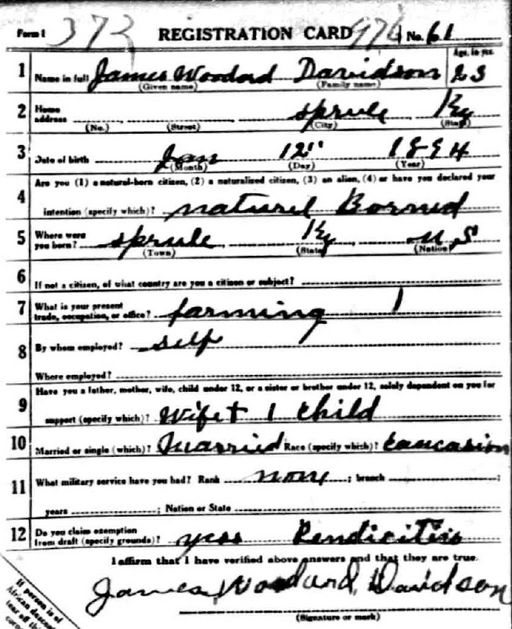 Form 1 373 REGISTRATION CARD 976 No. 61
Age, in yrs.
1 Name in full James Woodard Davidson 23
(Given name) (Family name)
2 Home address Sprule Ky
(No.) (Street) (City) (State)
3 Date of birth Jan 12" 1894
(Month) (Day) (Year)
Are you (1) a natural-born citizen, (2) a naturalized citizen, (3) an alien, (4) or have you declared your
4 intention (specify which)? naturel Borned
5 Where were you born? Sprule Ky U S
(Town) (State) (Nation)
6 If not a citizen, of what country are you a citizen or subject?
7 What is your present trade, occupation, or office? farming 1
8 By whom employed? self
Where employed?
Have you a father, mother, wife, child under 12, or a sister or brother under 12, solely dependent on you for
9 support (specify which)? Wife + 1 child
10 Married or single (which)? Married Race (specify which)? Caucasion
11 What military service have you had? Rank non ; branch ;
years ; Nation or State
12 Do you claim exemption from draft (specify grounds)? yes Pendicitis
I affirm that I have verified above answers and that they are true.
James Woodard Davidson
(Signature or mark)
If person is of
African descent
tear off this